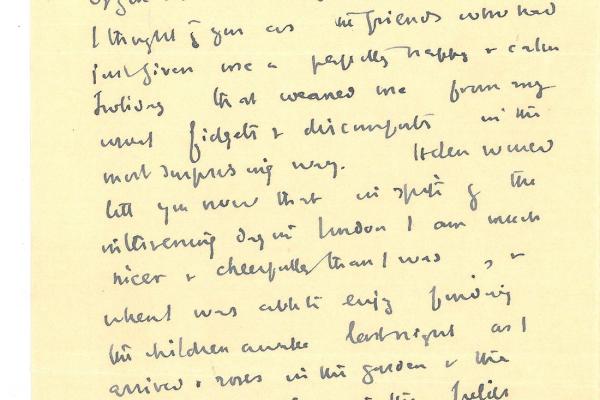 I thought of you as the friends who had
just given me a perfectly happy & calm
holiday that weaned me from my
usual fidgets & discomforts in the
most surprising way. Helen would
tell you now that in spite of the
intervening day in London I am much
nicer & cheerfuller than I was, &
when I was able to enjoy finding
the children awake last night as I
arrived & roses in the garden & the
in the